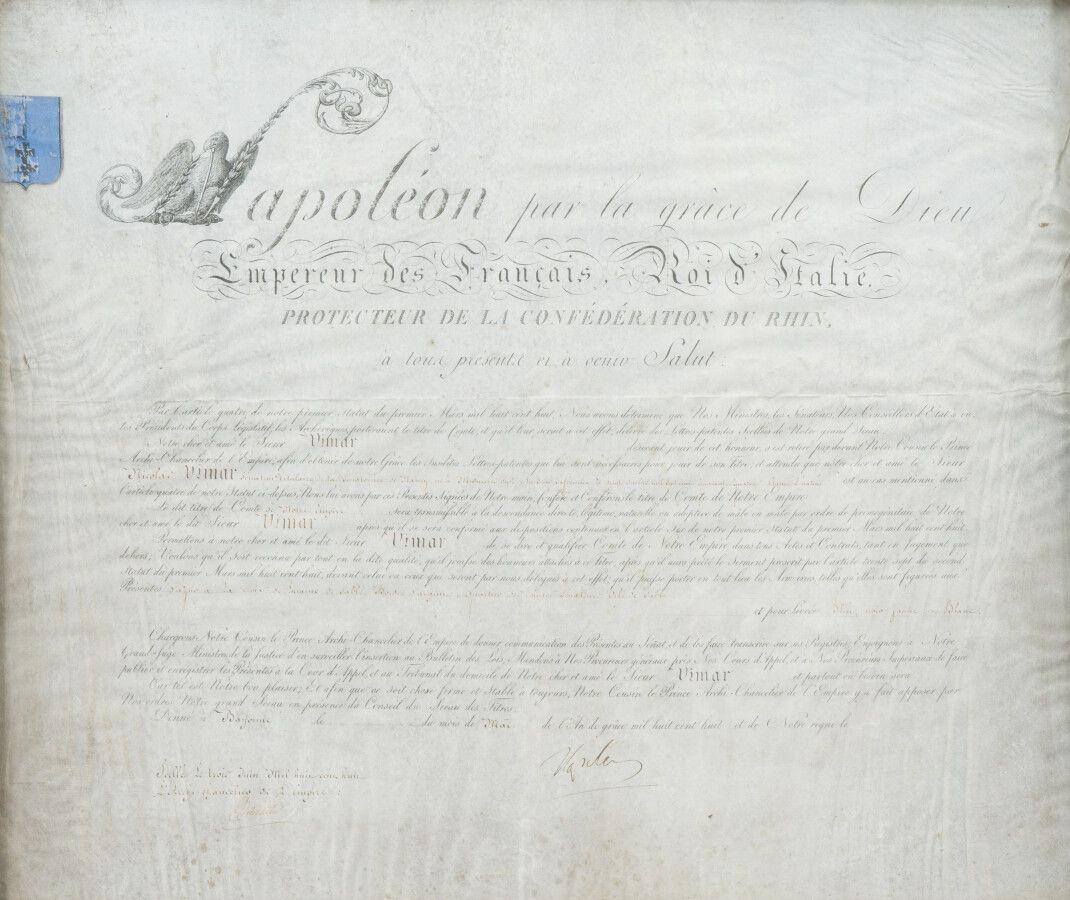 Napoléon par la grâce de Dieu
Empereur des Français, Roi d'Italie,
PROTECTEUR DE LA CONFÉDÉRATION DU RHIN,
à tous présents et à venir Salut:
Par l'article quatre de notre premier Statut du premier Mars mil huit cent huit, Nous avons déterminé que Nos Ministres, les Sénateurs, Nos Conseillers d'Etat à vie,
les Présidents du Corps Législatif, les Archevêques porteraient le titre de Comte, et qu'il leur serait à cet effet, délivré des Lettres patentes Scellées de Notre grand Sceau.
Notre cher et amé le Sieur Vimar désirant jouir de cet honneur, s'est retiré par devant Notre Cousin le Prince
Archi-Chancelier de l'Empire, afin d'obtenir de notre Grâce les Susdites Lettres-patentes qui lui sont nécessaires pour jouir de son Titre, et attendu que notre cher et amé le Sieur
Nicolas Vimar est au cas mentionné dans
l'article quatre de notre Statut ci-dessus, Nous lui avons par ces Présentes Signées de Notre main, Conféré et Conférons le titre de Comte de Notre Empire.
Le dit titre de Comte de Notre Empire sera transmissible à la descendance directe, légitime, naturelle ou adoptive de mâle en mâle par ordre de primogéniture de Notre
cher et amé le dit Sieur Vimar après qu'il se sera conformé aux dispositions contenues en l'article six de notre premier Statut du premier Mars mil huit cent huit.
Permettons à notre cher et amé le dit Sieur Vimar de se dire et qualifier Comte de Notre Empire dans tous Actes et Contrats, tant en Jugement que
dehors; Voulons qu'il soit reconnu par tout en la dite qualité, qu'il jouisse des honneurs attachés à ce Titre, après qu'il aura prêté le Serment prescrit par l'article trente sept du second
Statut du premier Mars mil huit cent huit, devant celui ou ceux qui seront par nous délégués à cet effet; qu'il puisse porter en tout lieu les Armoiries telles qu'elles sont figurées aux
Présentes. d'azur à la croix de
et pour Livrée, Bleu, Blanc
Chargeons Notre Cousin le Prince Archi-Chancelier de l'Empire de donner communication des Présentes au Sénat, et de les faire transcrire sur ses Registres; Enjoignons à Notre
Grand-Juge Ministre de la Justice d'en surveiller l'insertion au Bulletin des Lois; Mandons à Nos Procureurs généraux près Nos Cours d'Appel, et à Nos Procureurs Impériaux de faire
publier et enregistrer les Présentes à la Cour d'Appel, et au Tribunal du domicile de Notre cher et amé le Sieur Vimar et partout où besoin sera.
Car tel est Notre bon plaisir; Et afin que ce soit chose ferme et Stable à toujours, Notre Cousin le Prince Archi-Chancelier de l'Empire y a fait apposer par
Nos ordres, Notre grand Sceau en présence du Conseil du Sceau des Titres.
Donné à Bayonne le du mois de Mai de l'An de grâce mil huit cent huit et de Notre règne le
Scellé le trois Juin Mil huit cent huit
L'Archi-chancelier de l'empire: